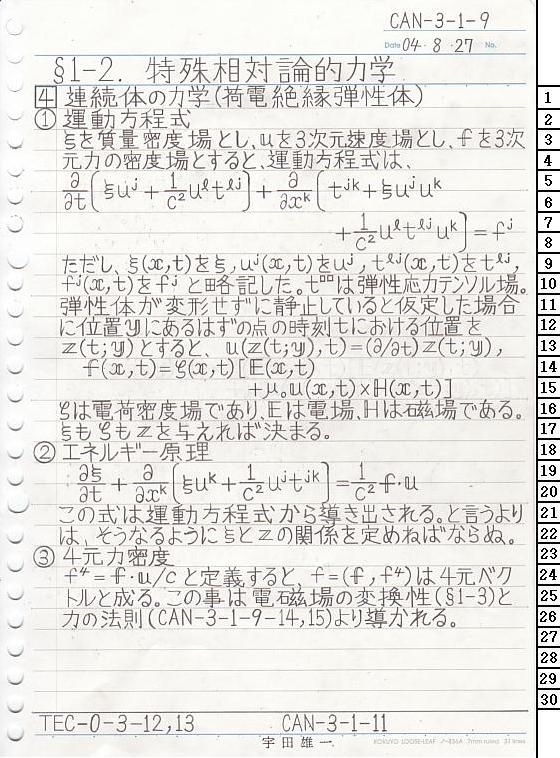 CAN-3-1-9
Date 04・8・27 No.
§1-2. 特殊相対論的力学
4 連続体の力学(荷電絶縁弾性体)
① 運動方程式
ξを質量密度場とし、uを3次元速度場とし、fを3次
元力の密度場とすると、運動方程式は、
∂/∂t[ξu^j + 1/c² u^ℓ t^ℓj] + ∂/∂x^k[t^jk + ξu^j u^k
+ 1/c² u^ℓ t^ℓj u^k] = f^j
ただし、ξ(x,t)をξ, u^j(x,t)をu^j, t^ℓj(x,t)をt^ℓj,
f^j(x,t)をf^jと略記した。t^□□は弾性応力テンソル場。
弾性体が変形せずに静止していると仮定した場合
に位置yにあるはずの点の時刻tにおける位置を
z(t;y)とすると、u(z(t;y),t)=(∂/∂t)z(t;y),
f(x,t)=ζ(x,t)[E(x,t)
+μ₀u(x,t)×H(x,t)]
ζは電荷密度場であり、Eは電場、Hは磁場である。
ξもζもzを与えれば決まる。
② エネルギー原理
∂ξ/∂t + ∂/∂x^k[ξu^k + 1/c² u^j t^jk] = 1/c² f・u
この式は運動方程式から導き出される。と言うより
は、そうなるようにξとzの関係を定めねばならぬ。
③ 4元力密度
f⁴=f・u/cと定義すると、f=(f,f⁴)は4元ベク
トルと成る。この事は電磁場の変換性(§1-3)と
力の法則(CAN-3-1-9-14,15)より導かれる。
TEC-0-3-12,13 CAN-3-1-11
宇田雄一
KOKUYO LOOSE-LEAF ノ-836A 7mm ruled 31 lines
1
2
3
4
5
6
7
8
9
10
11
12
13
14
15
16
17
18
19
20
21
22
23
24
25
26
27
28
29
30